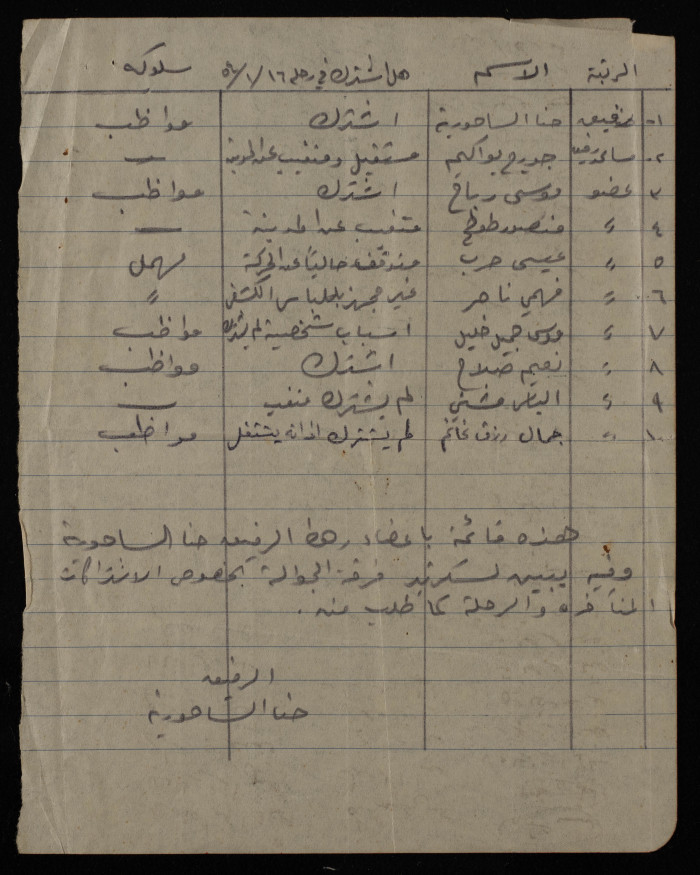 الرتبة الاسم هل اشترك في رحلة ١٦/١/ سلوكه
١- رفيق حنا الساحورية اشترك مواظب
٢- مساعد رفيق جورج يواكيم مستقيل ومتغيب عن المدينة —
٣ عضو موسى رباع اشترك مواظب
٤ " منصور متغيب عن المدينة —
٥ " عيسى حرب متوقف حالياً عن الحركة مهمل
٦ " فهمي ناصر غير مجهز بلباس الكشفي "
٧ " موسى جميل خليل اسباب شخصية لم يشترك مواظب
٨ " نعيم صلاح اشترك مواظب
٩ " الياس لم يشترك متغيب —
١٠ " جمال رزق غانم لم يشترك اذ انه يشتغل مواظب
هذه قائمة باعضاء رهط الرفيق حنا الساحورية
وفيه يبين لسكرتير فرقة الجوالة بخصوص الاشتراكات
المتأخره والرحلة كما طلب منه .
الرفيق
حنا الساحورية